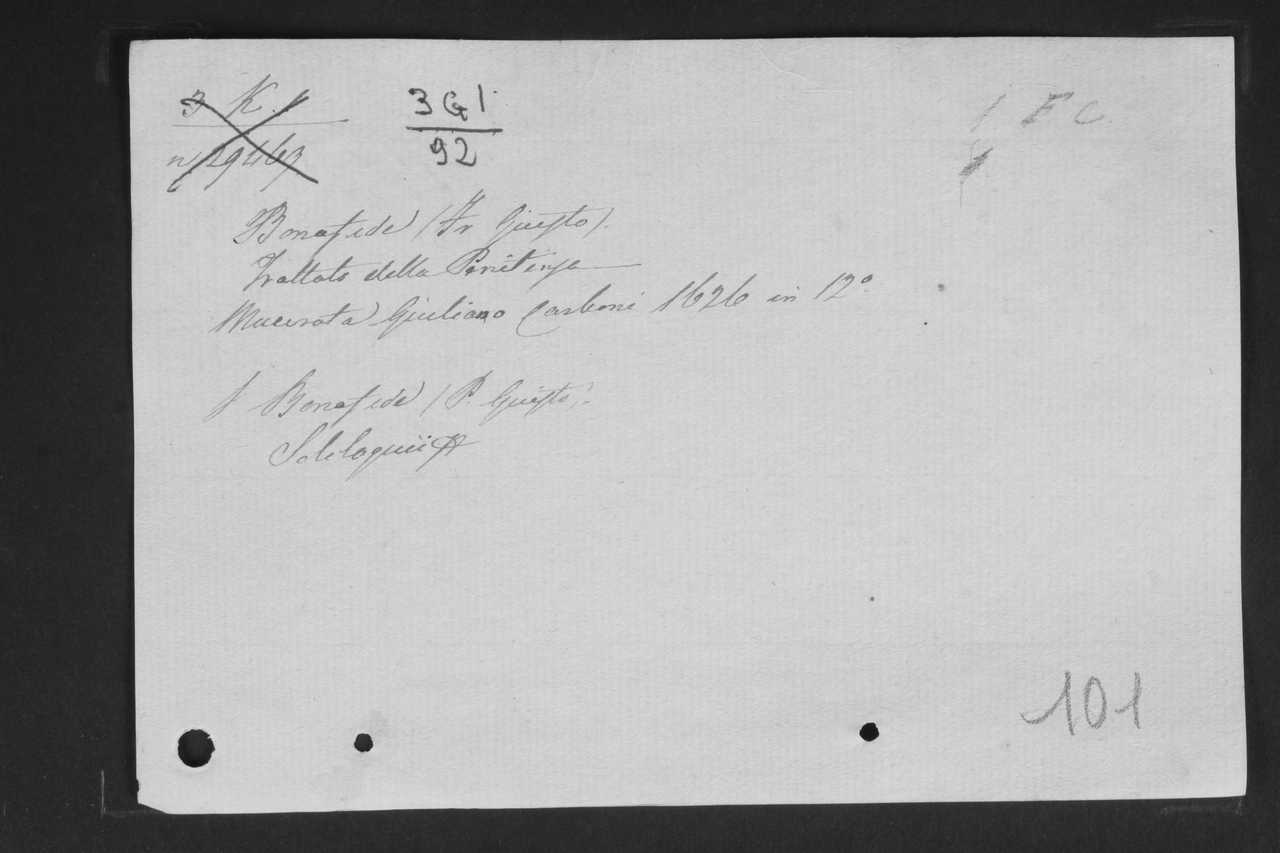 3 K. 1
n 29463
3 G 1.
92
1 F C.
Bonafede (Fr Giusto).
Trattato della Penitenza
Macerata Giuliano Carboni 1626 in 12°
Bonafede (P. Giusto).
Soliloquii
101